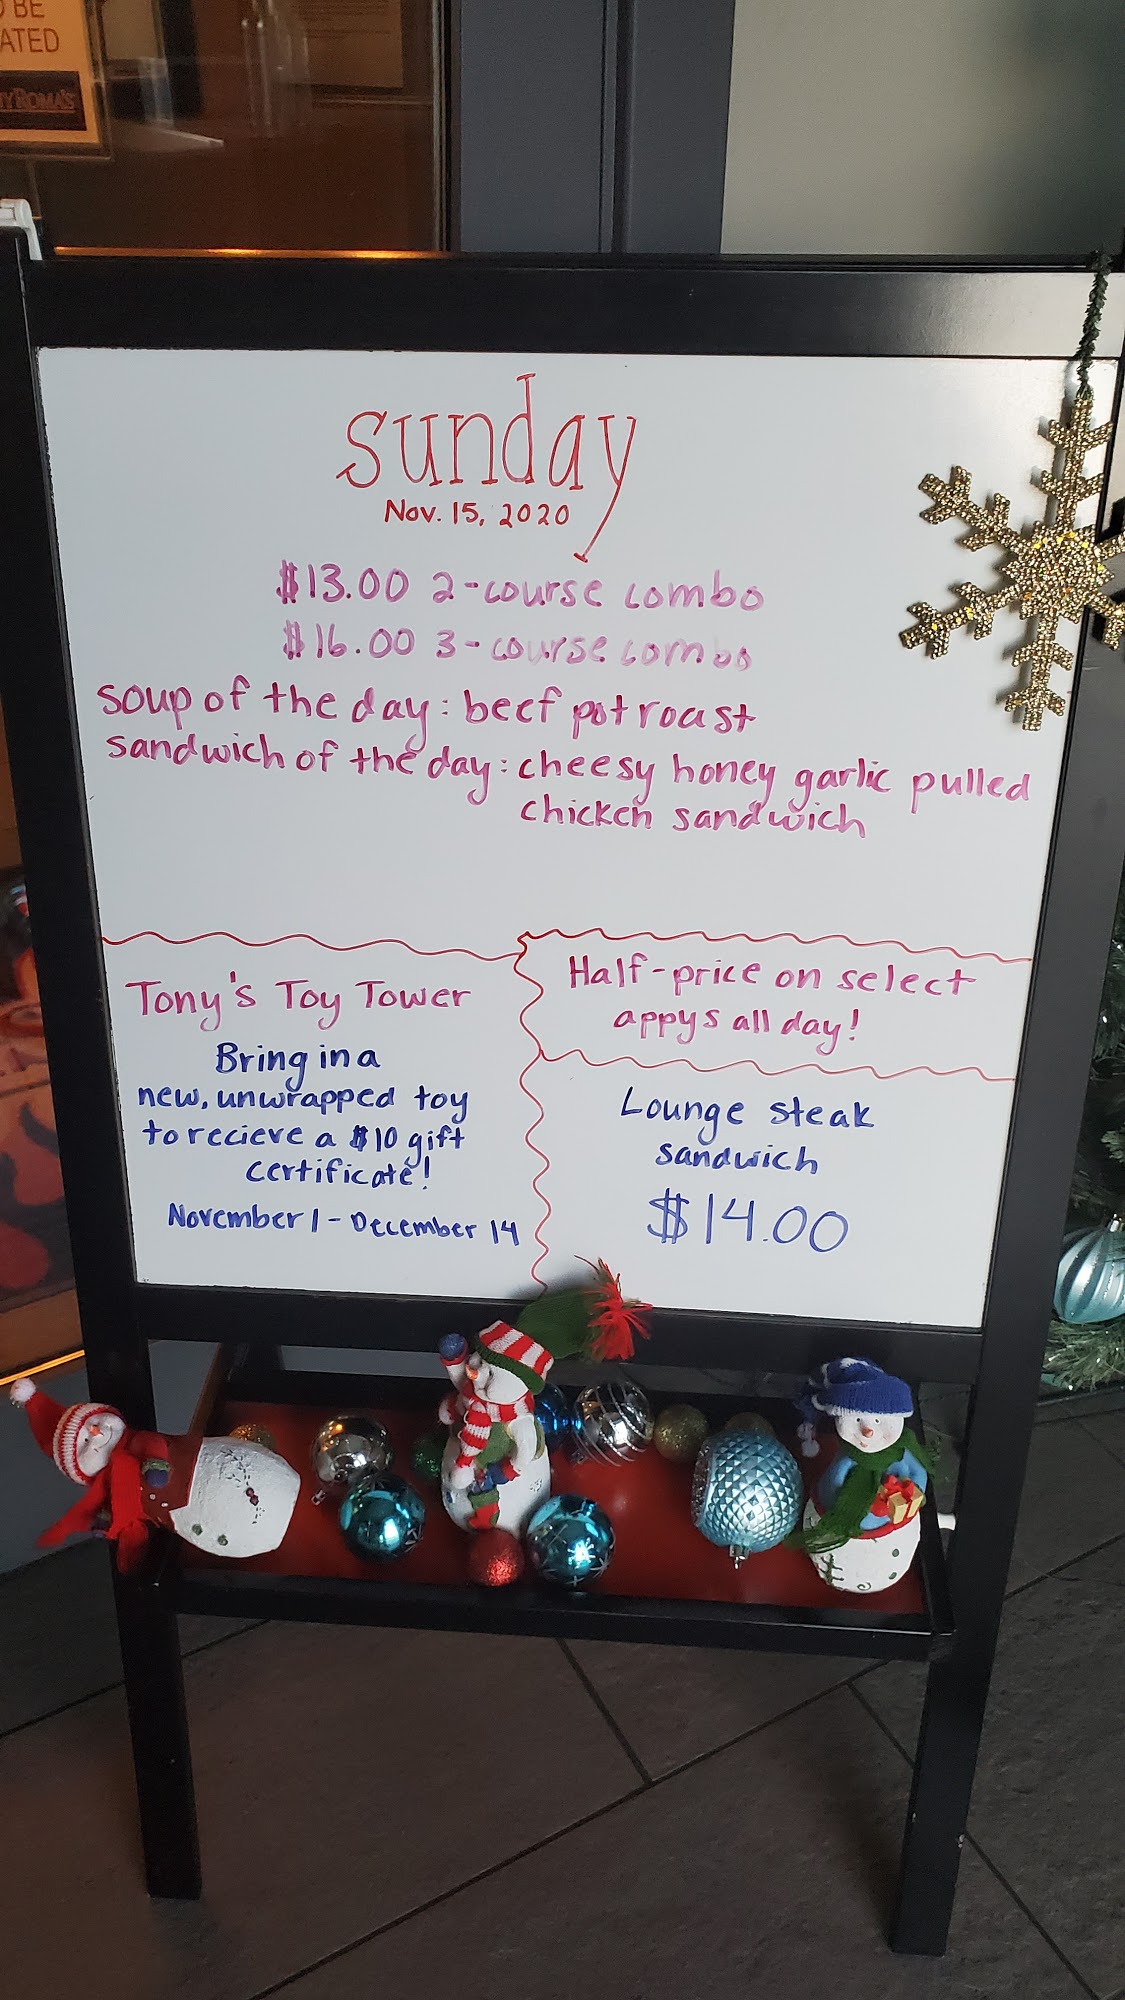 BE
ATED
ROMA'S
sunday
Nov. 15, 2020
$13.00 2-course combo
$16.00 3-course combo
soup of the day: beef pot roast
sandwich of the day: cheesy honey garlic pulled
chicken sandwich
Tony's Toy Tower
Bring in a
new, unwrapped toy
to recieve a $10 gift
certificate!
November 1 - December 14
Half-price on select
appys all day!
Lounge steak
sandwich
$14.00